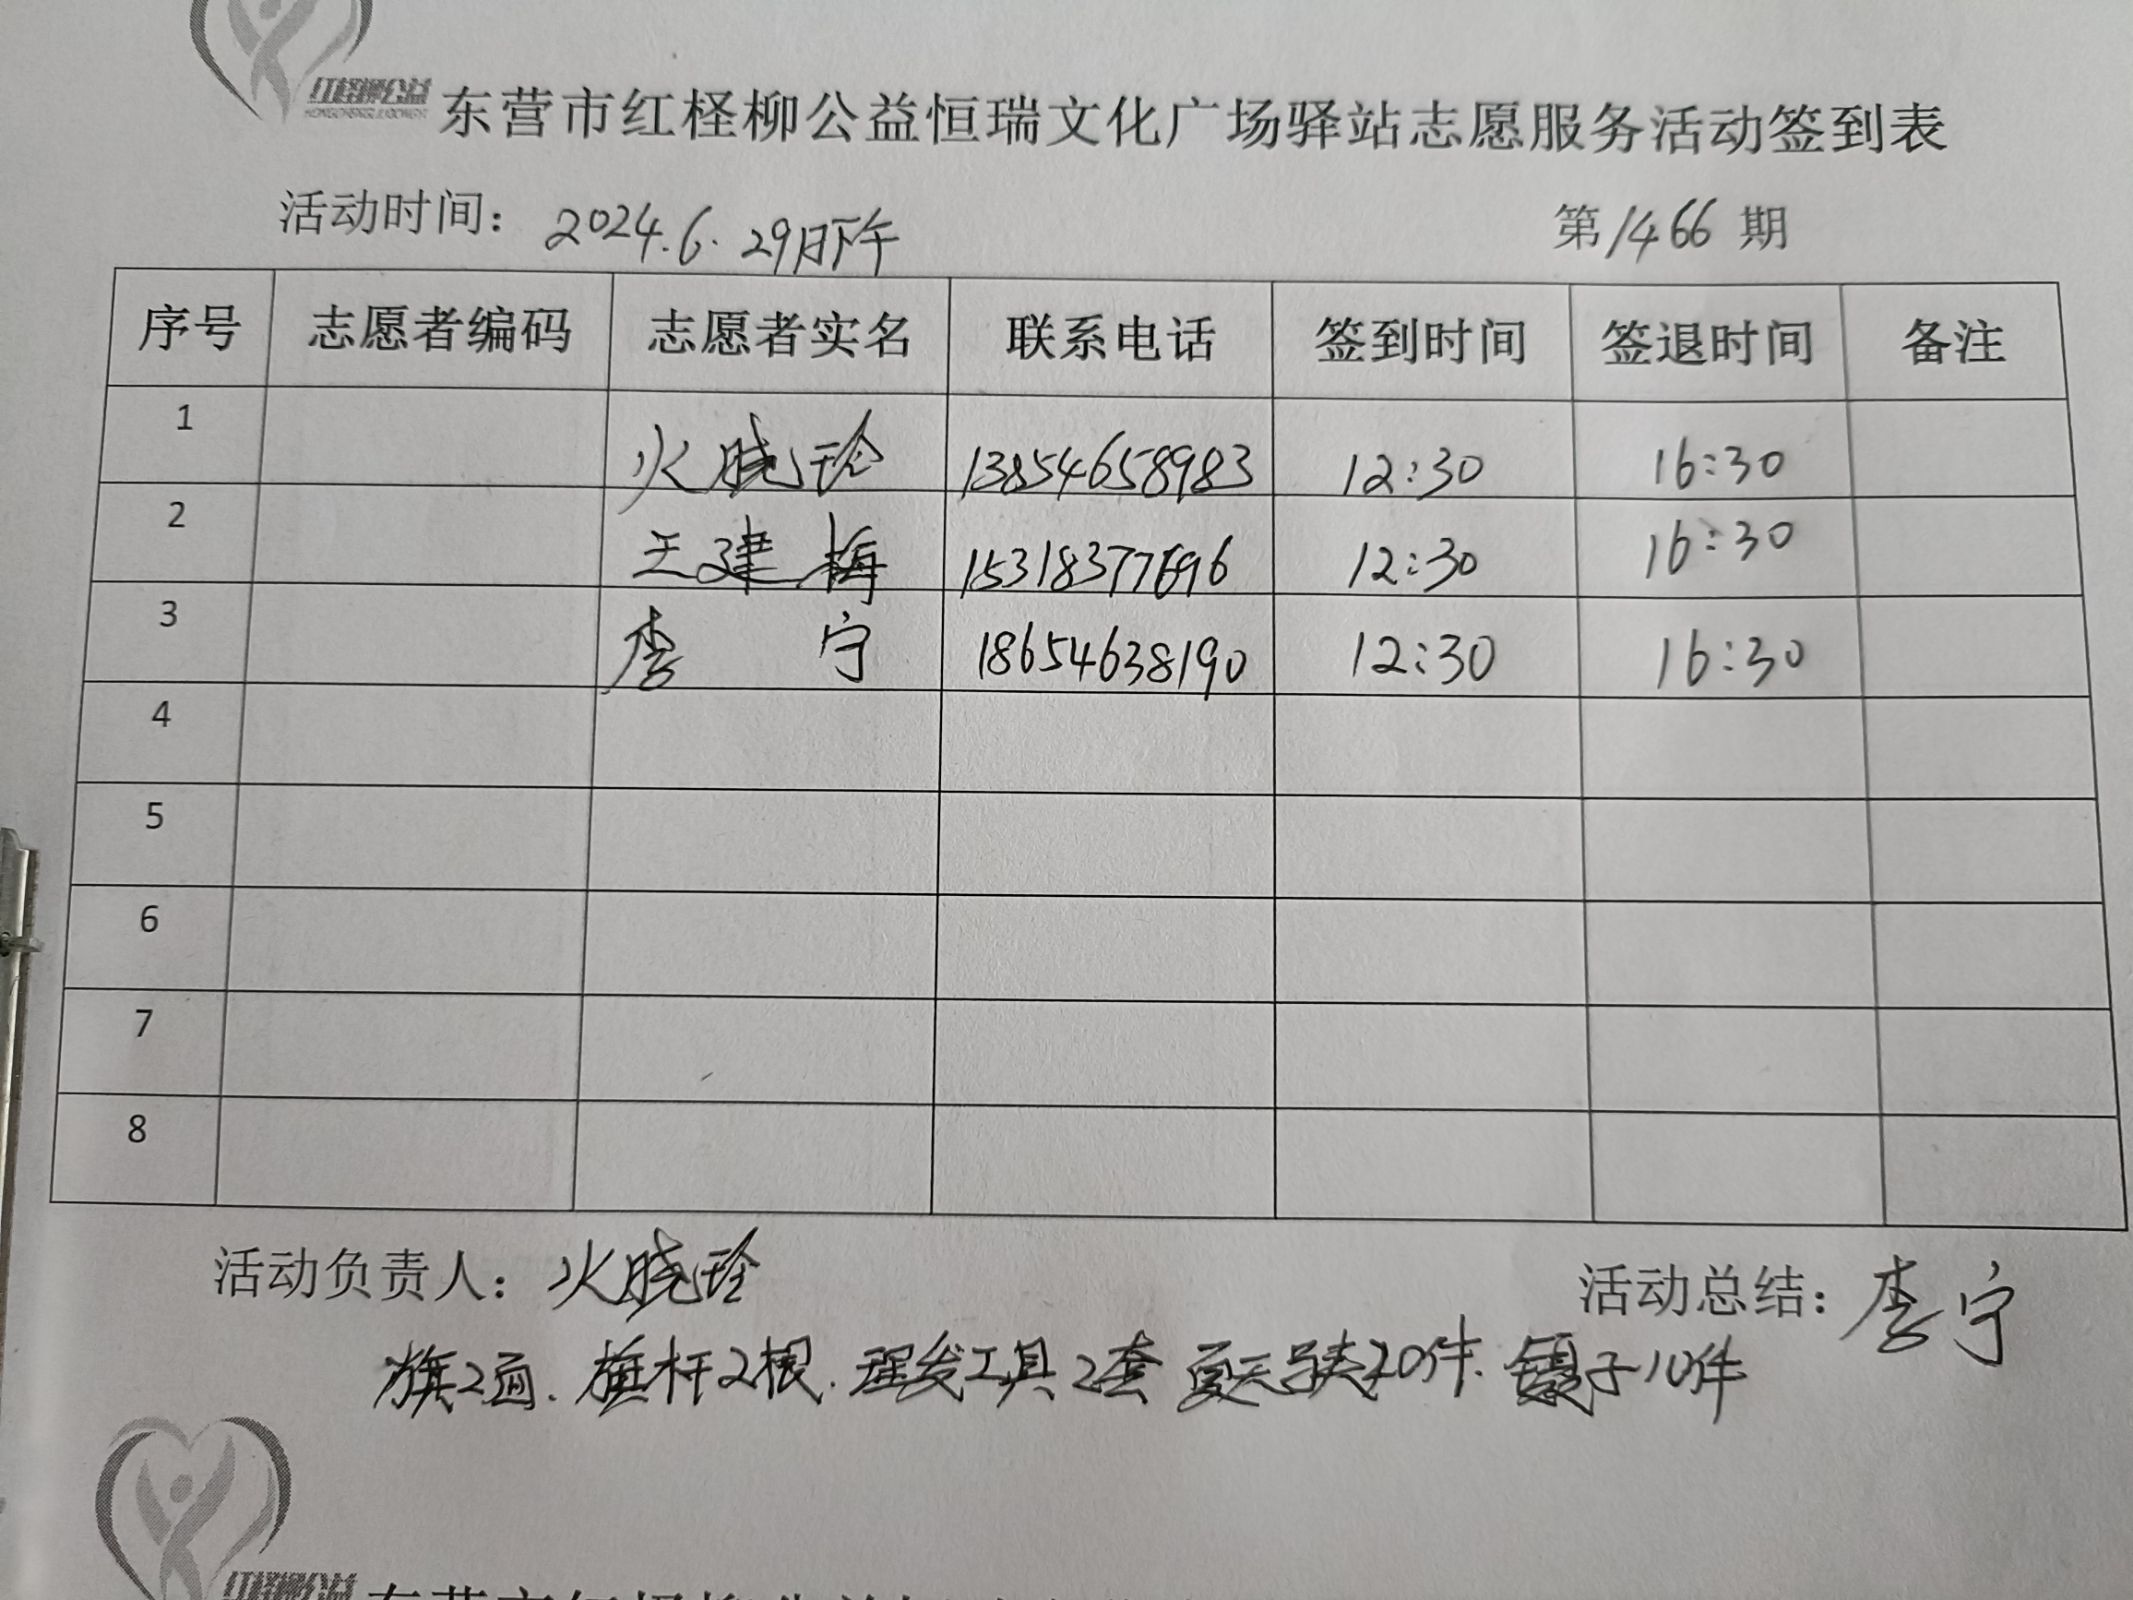 红柽柳公益
东营市红柽柳公益恒瑞文化广场驿站志愿服务活动签到表
活动时间：2024.6.29日下午 第1466期
序号 志愿者编码 志愿者实名 联系电话 签到时间 签退时间 备注
1 火晓玲 13854658983 12:30 16:30
2 王建梅 15318377696 12:30 16:30
3 李宁 18654638190 12:30 16:30
4
5
6
7
8
活动负责人：火晓玲 活动总结：李宁
旗2面.旗杆2根.理发工具2套 夏天 20件. 镊子10件
红柽柳公益